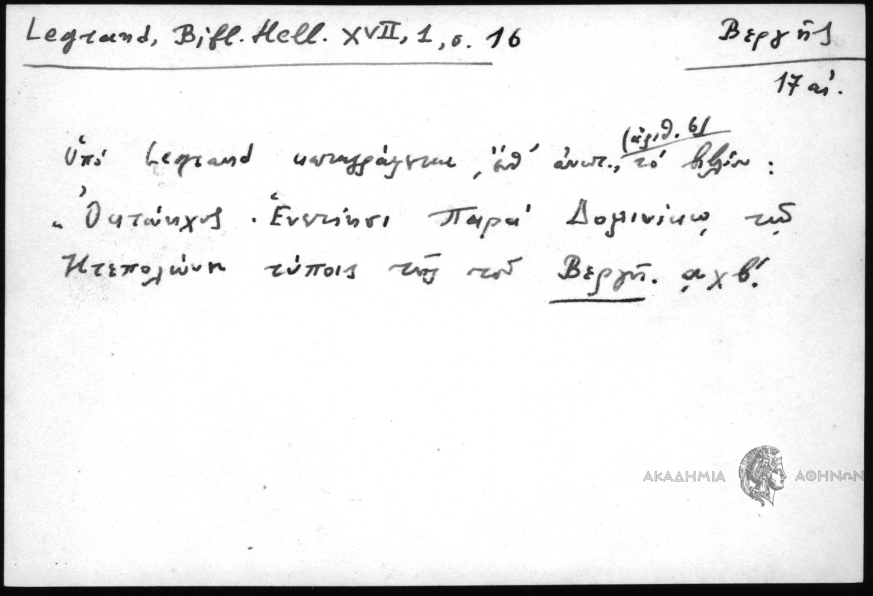 Legrand, Bibl. Hell. XVII, 1, σ. 16
Βεργῆς
17 αἰ.
(ἀριθ. 6)
Ὑπὸ Legrand καταγράφεται, ἔνθ' ἀνωτ., τὸ βιβλίον:
„Ὀκτώηχος. Ἐνετίησι Παρὰ Δομινίκῳ τῷ
Ντεπολώνη τύποις τῆς τοῦ Βεργῆ. ͵αχβ.'
ΑΚΑΔΗΜΙΑ ΑΘΗΝΩΝ